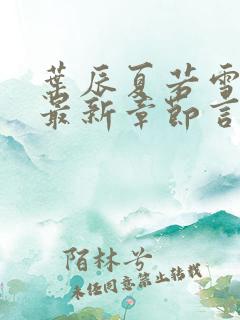 葉辰夏若雪
最新章節言
陌林兮
未经同意禁止转载